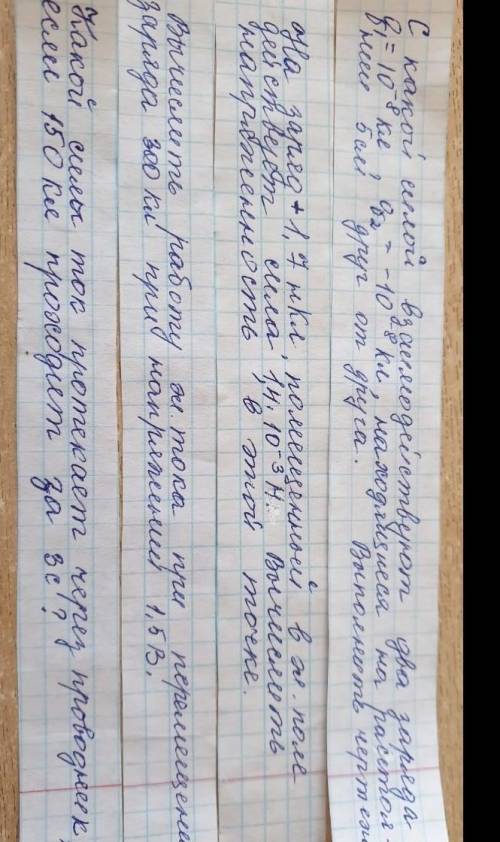 С какой силой взаимодействуют два заряда
q₁ = 10⁻⁸ кл и q₂ = -10⁻⁸ кл, находящиеся на расстоя-
нии 5см друг от друга. Выполнить чертеж
На заряд + 1,7 нкл, помещенный в эл. поле
действует сила 1,4·10⁻³Н. Вычислить
напряженность в этой точке.
Вычислить работу эл. тока при перемещени
заряда 300 кл при напряжении 1,5В.
Какой силы ток протекает через проводник,
если 150 кл проходит за 3с?